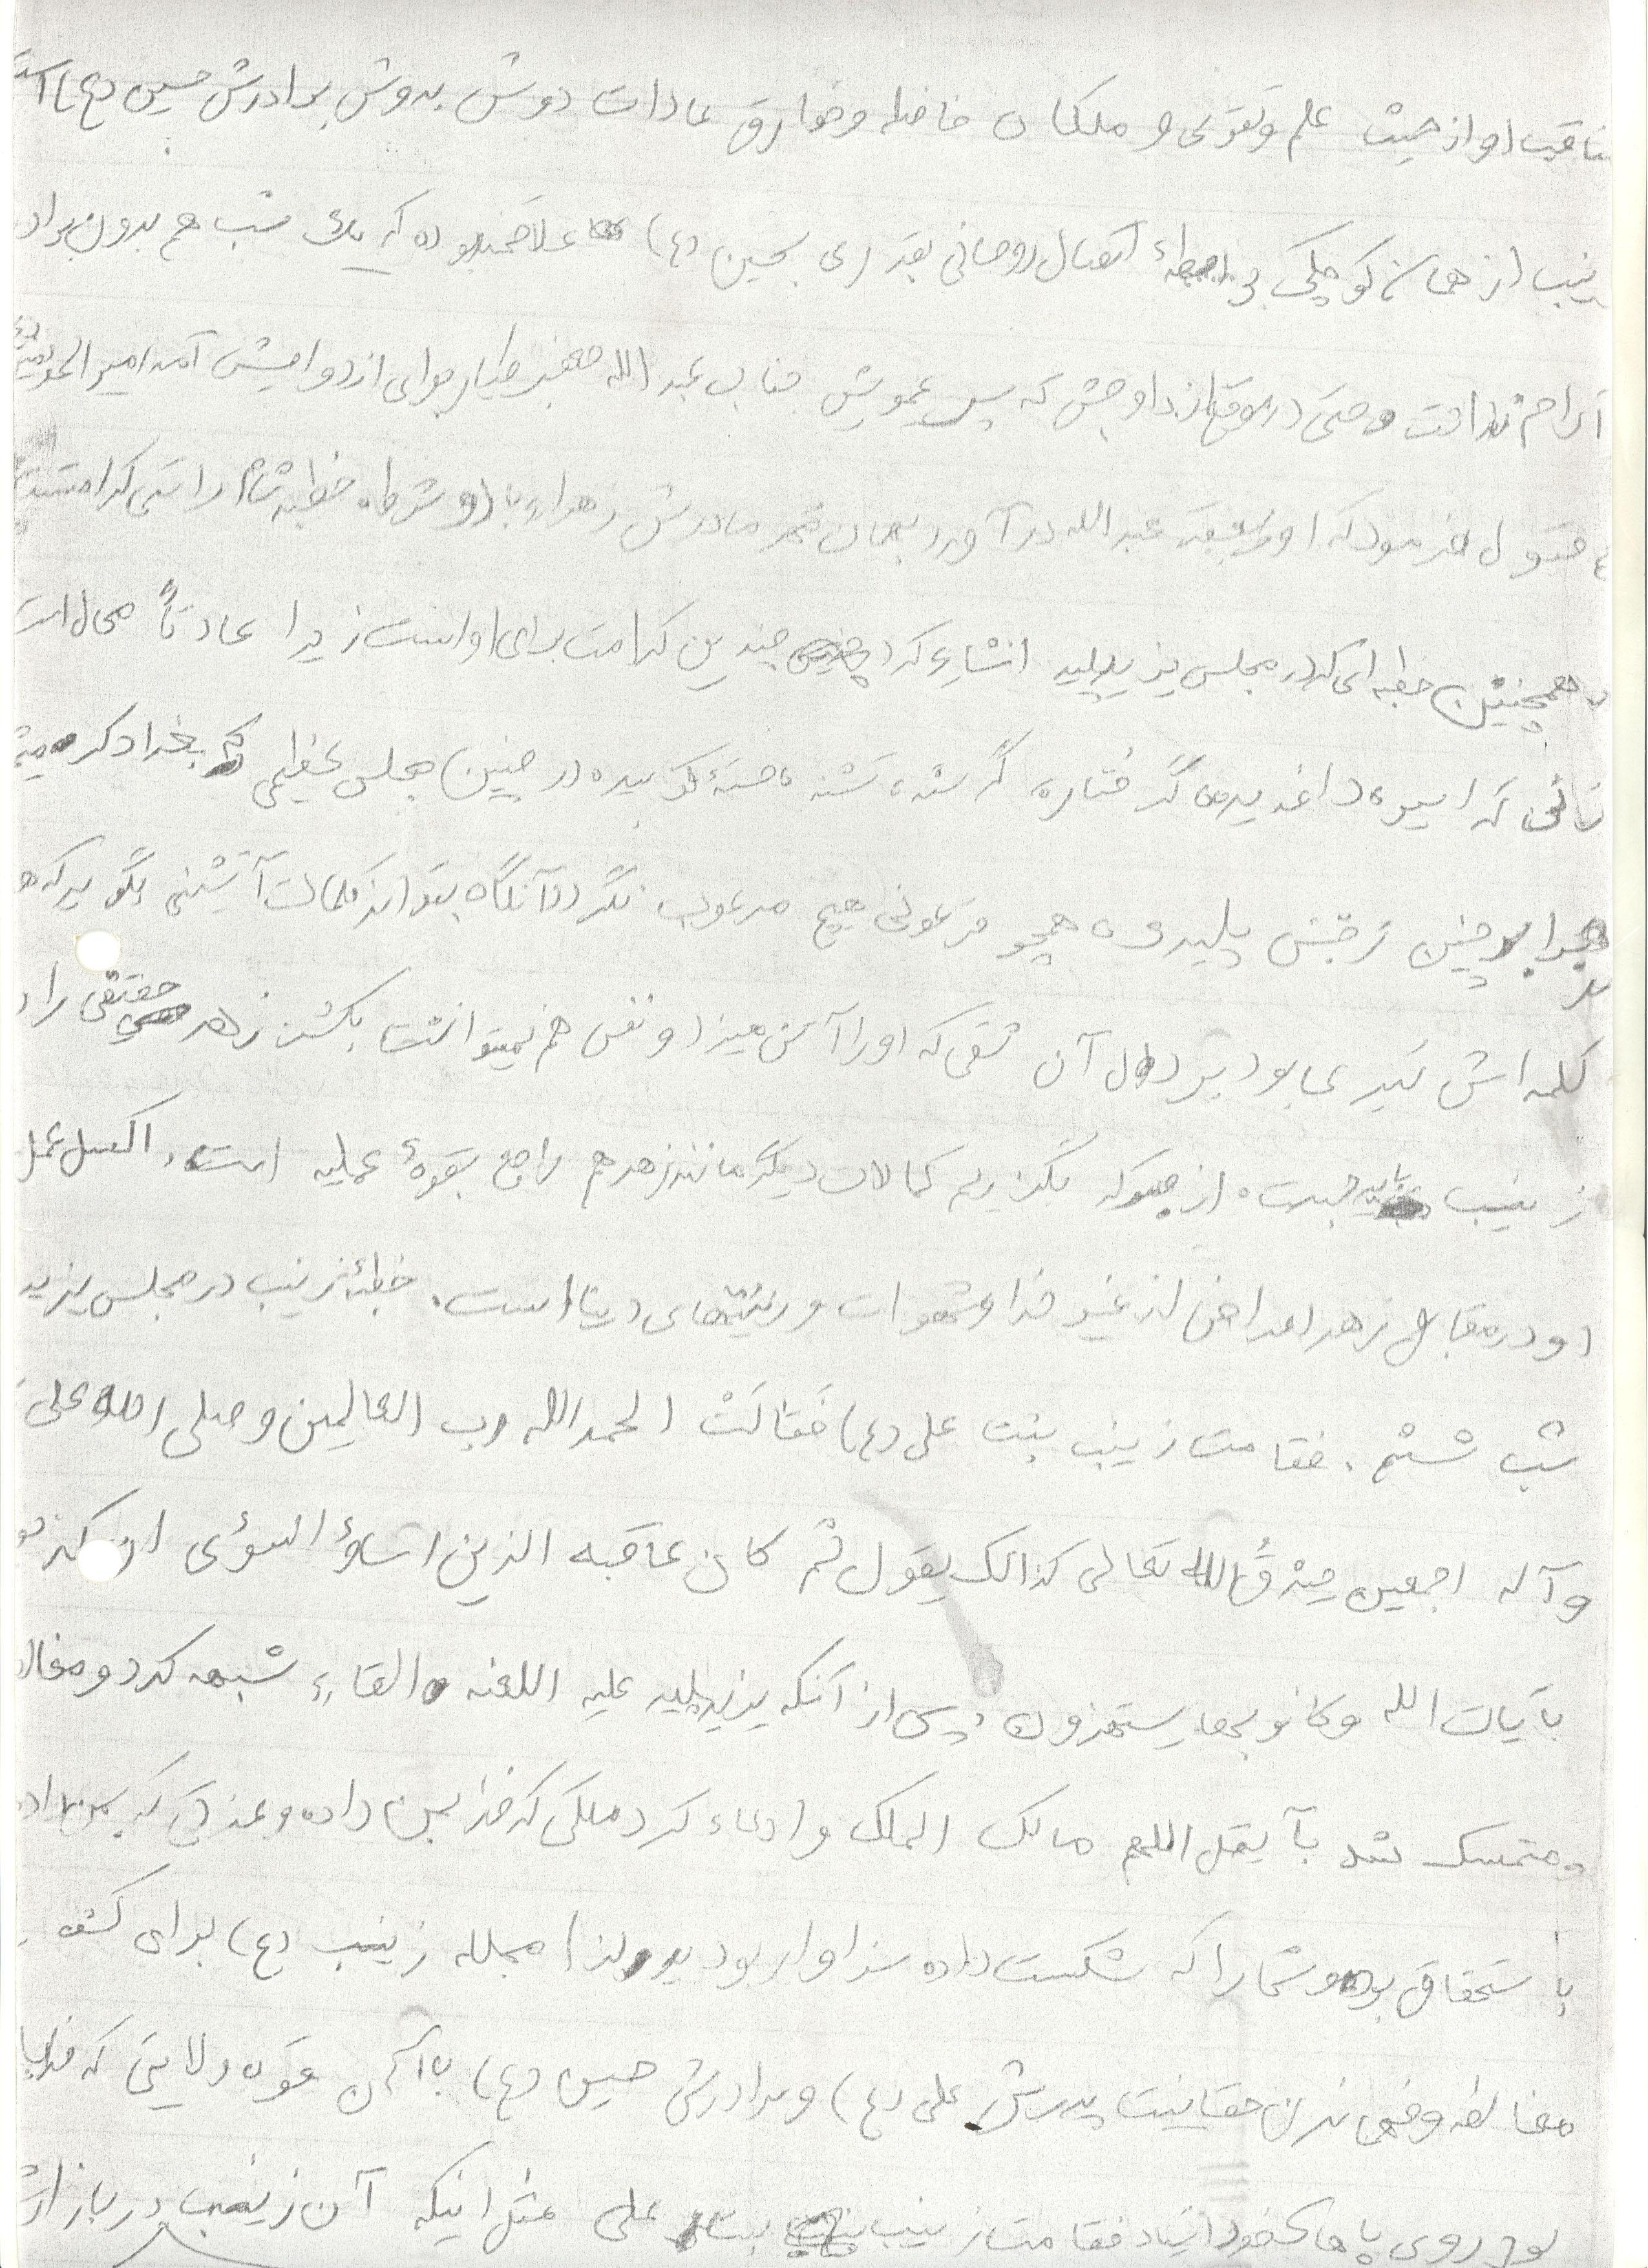 مناقب او از حیث علم و تقوی و ملکات فاضله و خوارق عادات دوش بدوش برادرش حسین (ع) است
زینب از همان کوچکی بواسطهٔ اتصال روحانی بقدری بحسین (ع) علاقمند بوده که یک شب هم بدون برادر
آرام نداشت و حتی در موقع ازدواجش که پسر عمویش جناب عبد الله جعفر طیار برای ازدواجش آمد امیر المؤمنین
قبول فرمود که او را بعقد عبد الله در آورد بهمان مهر مادرش زهراء با دو شرط، خطبه شام راستی کرامتست
و همچنین خطبه ای که در مجلس یزید پلید انشاء کرد چندین کرامت برای او است زیرا عادتاً محال است
زنانی که اسیر، داغدیده، گرفتار، گرسنه، تشنه، خسته، کوبیده در چنین مجلس عظیمی
برابر چنین نجس پلیدی، همچو فرعونی هیچ مرعوب نگردد آنگاه بتواند کلمات آتشینی بگوید که هر
کلمه اش تیری بود بر دل آن شقی که او را آتش میزد و نفس هم نمیتوانست بکشد زهد حقیقی را در
زینب باید جست. از صبر که بگذریم کمالات دیگر مانند زهد هم راجع بقوهٔ عملیه است. اکسل عمل
او در مقابل زهد اعراض از غیر خدا و شهوات و زینتهای دنیا است. خطبهٔ زینب در مجلس یزید
شب ششم. فقامت زینب بنت علی (ع) فَقالَتْ الحمدالله رب العالمین و صلی الله علی
وآله اجمعین صدقُ الله تعالی کذالک یقول ثم کان عاقبه الذین اساؤ السوئی ان کذبو
بآیات الله و کانو بها یستهزون پس از آنکه یزید پلید علیه اللعنه القاء شبهه کرد و مغالطه
و متمسک شد بآیه قل اللهم مالک الملک و ادعاء کرد ملکی که خدا بمن داده و عزتی که بمن داده
باستحقاق بوده و شما را که شکست داده سزاوار بودید ولذا مجلله زینب (ع) برای کشف
مغالطه و فهماندن حقانیت پدرش علی (ع) و برادرش حسین (ع) با آن قوه ولایتی که خدا با
بود روی پاهای خود ایستاد فقامت زینب بنت علی مثل اینکه آن زینب در بازار